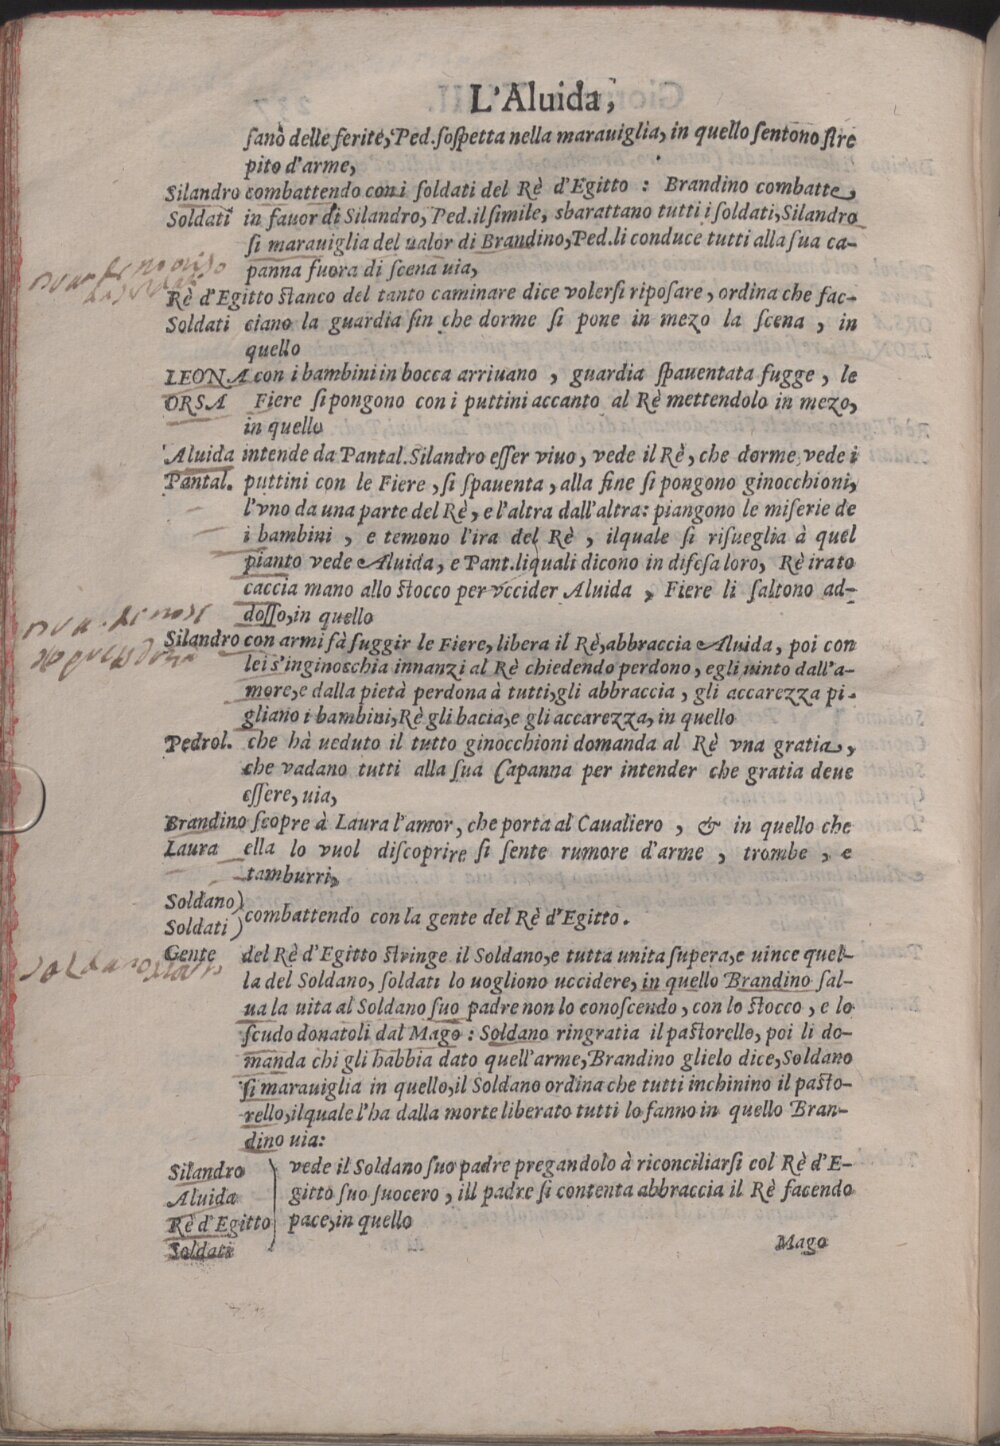 L'Aluida,
sano delle ferite, Ped. sospetta nella marauiglia, in quello sentono stre
pito d'arme,
Silandro combattendo con i soldati del Rè d'Egitto : Brandino combatte,
Soldati in fauor di Silandro, Ped. il simile, sbarattano tutti i soldati, Silandro
si marauiglia del ualor di Brandino, Ped. li conduce tutti alla sua ca-
panna fuora di scena uia,
Rè d'Egitto stanco del tanto caminare dice volersi riposare, ordina che fac-
Soldati ciano la guardia sin che dorme si pone in mezo la scena, in
quello
LEONA con i bambini in bocca arriuano, guardia spauentata fugge, le
ORSA Fiere si pongono con i puttini accanto al Rè mettendolo in mezo,
in quello
Aluida intende da Pantal. Silandro esser viuo, vede il Rè, che dorme, vede i
Pantal. puttini con le Fiere, si spauenta, alla fine si pongono ginocchioni,
l'vno da una parte del Rè, e l'altra dall'altra: piangono le miserie de
i bambini, e temono l'ira del Rè, ilquale si risueglia à quel
pianto vede Aluida, e Pant. liquali dicono in difesa loro, Rè irato
caccia mano allo stocco per vccider Aluida, Fiere li saltono ad-
dosso, in quello
Silandro con armi fà fuggir le Fiere, libera il Rè, abbraccia Aluida, poi con
lei s'inginocchia innanzi al Rè chiedendo perdono, egli uinto dall'a-
more, e dalla pietà perdona à tutti, gli abbraccia, gli accarezza pi-
gliano i bambini, Rè gli bacia, e gli accarezza, in quello
Pedrol. che hà ueduto il tutto ginocchioni domanda al Rè vna gratia,
che vadano tutti alla sua Capanna per intender che gratia deue
essere, uia,
Brandino scopre à Laura l'amor, che porta al Caualiero, & in quello che
Laura ella lo vuol discoprire si sente rumore d'arme, trombe, e
tamburri,
Soldano)
Soldati) combattendo con la gente del Rè d'Egitto.
Gente del Rè d'Egitto stringe il Soldano, e tutta unita supera, e uince quel-
la del Soldano, soldati lo uogliono uccidere, in quello Brandino sal-
ua la uita al Soldano suo padre non lo conoscendo, con lo stocco, e lo
scudo donatoli dal Mago : Soldano ringratia il pastorello, poi li do-
manda chi gli habbia dato quell'arme, Brandino glielo dice, Soldano
si marauiglia in quello, il Soldano ordina che tutti inchinino il pasto-
rello, ilquale l'ha dalla morte liberato tutti lo fanno in quello Bran-
dino uia:
Silandro vede il Soldano suo padre pregandolo à riconciliarsi col Rè d'E-
Aluida gitto suo suocero, ill padre si contenta abbraccia il Rè facendo
Rè d'Egitto pace, in quello
Soldati
Mago